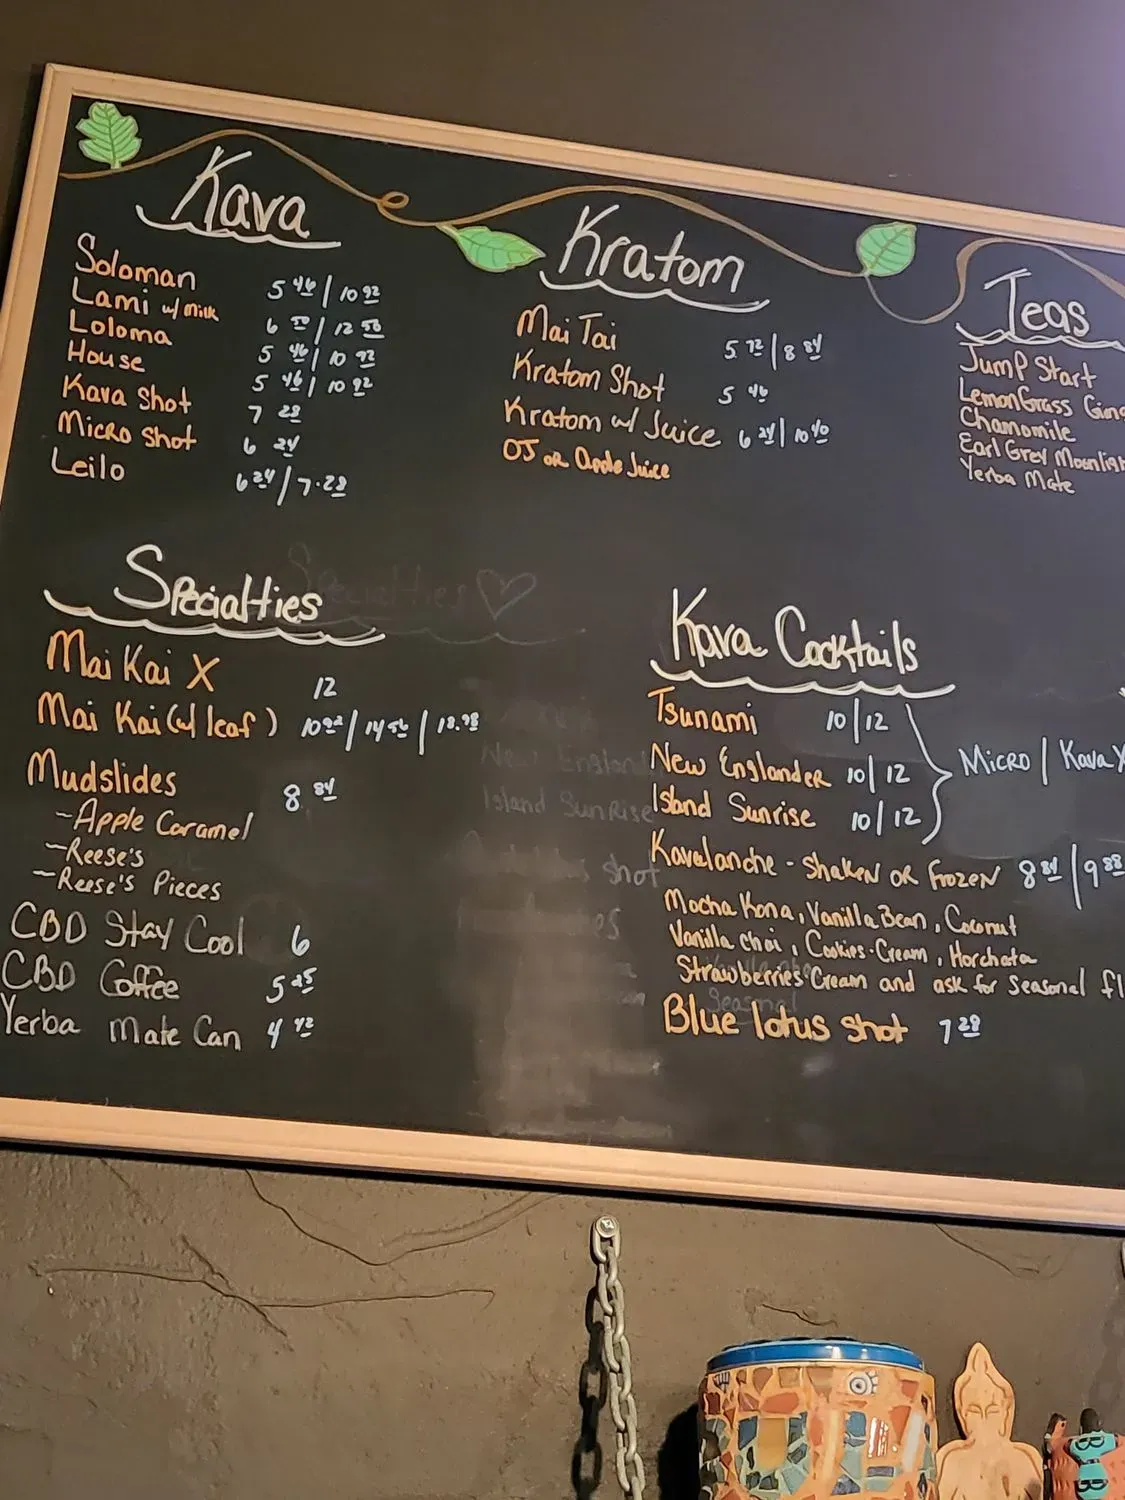 Kava
Soloman 5 46 | 10 92
Lami w/ milk 6 50 | 12 50
Loloma 5 46 | 10 92
House 5 46 | 10 92
Kava Shot 7 28
Micro Shot 6 24
Leilo 6 24 / 7.28
Kratom
Mai Tai 5 72 | 8 84
Kratom Shot 5 46
Kratom w/ Juice 6 24 | 10 40
OJ or Apple Juice
Teas
Jump Start
LemonGrass
Chamomile
Earl Grey
Yerba Mate
Specialties
Mai Kai X 12
Mai Kai (w/ leaf) 10 92 / 14 56 / 18.98
Mudslides 8 84
- Apple Caramel
- Reese's
- Reese's Pieces
CBD Stay Cool 6
CBD Coffee 5 25
Yerba Mate Can 4 42
Specialties
New England
Island Sunrise
shot
Kava Cocktails
Tsunami 10 | 12
New Englander 10 | 12
Island Sunrise 10 / 12
Micro | Kava
Kavalanche - Shaken or Frozen 8 84 / 9 88
Mocha Kona, Vanilla Bean, Coconut
Vanilla Chai, Cookies-Cream, Horchata
Strawberries Cream and ask for Seasonal
Seasonal
Blue lotus shot 7 28